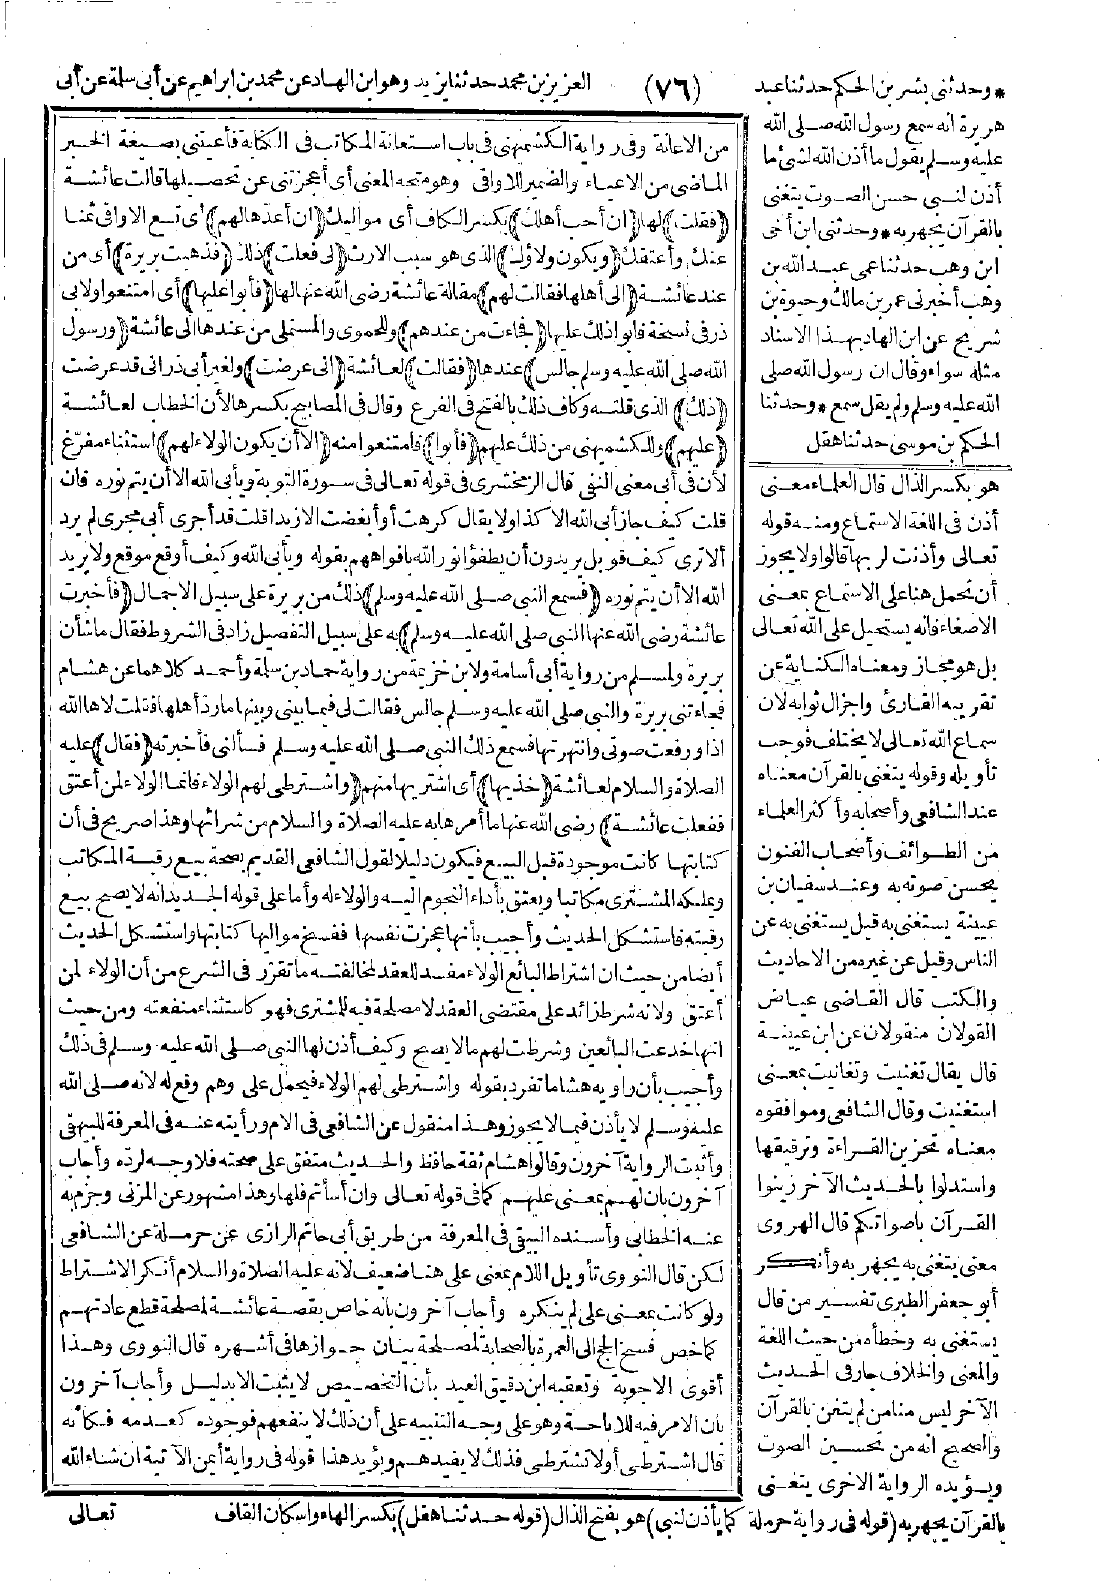 * وحدثنى بشر بن الحكم حدثنا عبد
(٧٦)
العزيز بن محمد حدثنا يزيد وهو ابن الهاد عن محمد بن ابراهيم عن أبى سلمة عن أبى
هريرة انه سمع رسول الله صلى الله
عليه وسلم يقول ما أذن الله لشئ ما
أذن لنبى حسن الصوت يتغنى
بالقرآن يجهر به * وحدثنى ابن أخى
ابن وهب حدثنا عمى عبد الله بن
وهب أخبرنى عمر بن مالك وحيوة بن
شريح عن ابن الهاد بهذا الاسناد
مثله سواء وقال ان رسول الله صلى
الله عليه وسلم ولم يقل سمع * وحدثنا
الحكم بن موسى حدثنا هقل
هو بكسر الذال قال العلماء معنى
أذن فى اللغة الاستماع ومنه قوله
تعالى وأذنت لربها قالوا ولا يجوز
أن تحمل هنا على الاستماع بمعنى
الاصغاء فانه يستحيل على الله تعالى
بل هو مجاز ومعناه الكناية عن
تقريبه القارئ واجزال ثوابه لان
سماع الله تعالى لا يختلف فوجب
تأويله وقوله يتغنى بالقرآن معناه
عند الشافعى وأصحابه وأكثر العلماء
من الطوائف وأصحاب الفنون
يحسن صوته به وعند سفيان بن
عيينة يستغنى به قيل يستغنى به عن
الناس وقيل عن غيره من الاحاديث
والكتب قال القاضى عياض
القولان منقولان عن ابن عيينة
قال يقال تغنيت وتغانيت بمعنى
استغنيت وقال الشافعى وموافقوه
معناه تحزين القراءة وترقيقها
واستدلوا بالحديث الآخر زينوا
القرآن بأصواتكم قال الهروى
معنى يتغنى به يجهر به وأنكر
أبو جعفر الطبرى تفسير من قال
يستغنى به وخطأه من حيث اللغة
والمعنى والخلاف جار فى الحديث
الآخر ليس منا من لم يتغن بالقرآن
والصحيح انه من تحسين الصوت
ويؤيده الرواية الاخرى يتغنى
بالقرآن يجهر به (قوله فى رواية حرملة كما يأذن لنبى) هو بفتح الذال (قوله حدثنا هقل) بكسر الهاء واسكان القاف
من الاعانة وفى رواية الكشميهنى فى باب استعانة المكاتب فى الكتابة فأعيتنى بصيغة الخبر
الماضى من الاعياء والضمير للاواقى وهو متجه المعنى أى أعجزتنى عن تحصيلها قالت عائشة
(فقلت) لها (ان أحب أهلك) بكسر الكاف أى مواليك (ان أعدها لهم) أى تسع الاواقى ثمنا
عنك وأعتقك (ويكون ولاؤك) الذى هو سبب الارث (لى فعلت) ذلك (فذهبت بريرة) أى من
عند عائشة (الى أهلها فقالت لهم) مقالة عائشة رضى الله عنها لها (فأبوا عليها) أى امتنعوا ولابى
ذر فى نسخة فابوا ذلك عليها (فجاءت من عندهم) وللحموى والمستملى من عندها الى عائشة (ورسول
الله صلى الله عليه وسلم جالس) عندها (فقالت) لعائشة (انى عرضت) ولغير أبى ذر انى قد عرضت
(ذلك) الذى قلته وكاف ذلك بالفتح فى الفرع وقال فى المصابيح بكسرها لأن الخطاب لعائشة
(عليهم) وللكشميهنى من ذلك عليهم (فأبوا) فامتنعوا منه (الا أن يكون الولاء لهم) استثناء مفرّغ
لأن فى أبى معنى النفى قال الزمخشرى فى قوله تعالى فى سورة التوبة ويأبى الله الا أن يتم نوره فان
قلت كيف جاز أبى الله الا كذا ولا يقال كرهت أو أبغضت الا زيدا قلت قد أجرى أبى مجرى لم يرد
ألا ترى كيف قوبل يريدون أن يطفؤا نور الله بافواههم بقوله ويأبى الله وكيف أوقع موقع ولا يريد
الله الا أن يتم نوره (فسمع النبى صلى الله عليه وسلم) ذلك من بريرة على سبيل الاجمال (فأخبرت
عائشة رضى الله عنها النبى صلى الله عليه وسلم) به على سبيل التفصيل زاد فى الشروط فقال ما شأن
بريرة ولمسلم من رواية أبى أسامة ولابن خزيمة من رواية حماد بن سلمة وأحمد كلاهما عن هشام
فجاءتنى بريرة والنبى صلى الله عليه وسلم جالس فقالت لى فيما بينى وبينها ما ردّ أهلها فقلت لاها الله
اذا ورفعت صوتى وانتهرتها فسمع ذلك النبى صلى الله عليه وسلم فسألنى فأخبرته (فقال) عليه
الصلاة والسلام لعائشة (خذيها) أى اشتريها منهم (واشترطى لهم الولاء فانما الولاء لمن أعتق
ففعلت عائشة) رضى الله عنها ما أمرها به عليه الصلاة والسلام من شرائها وهذا صريح فى أن
كتابتها كانت موجودة قبل البيع فيكون دليلا لقول الشافعى القديم بصحة بيع رقبة المكاتب
ويملكه المشترى مكاتبا ويعتق بأداء النجوم اليه والولاء له وأما على قوله الجديد انه لا يصح بيع
رقبته فاستشكل الحديث وأجيب بأنها عجزت نفسها ففسخ مواليها كتابتها واستشكل الحديث
أيضا من حيث ان اشتراط البائع الولاء مفسد للعقد لمخالفته ما تقرّر فى الشرع من أن الولاء لمن
أعتق ولانه شرط زائد على مقتضى العقد لا مصلحة فيه للمشترى فهو كاستثناء منفعته ومن حيث
انها خدعت البائعين وشرطت لهم ما لا يصح وكيف أذن لها النبى صلى الله عليه وسلم فى ذلك
وأجيب بأن راويه هشاما تفرد بقوله واشترطى لهم الولاء فيحمل على وهم وقع له لانه صلى الله
عليه وسلم لا يأذن فيما لا يجوز وهذا منقول عن الشافعى فى الام ورأيته عنه فى المعرفة للبيهقى
وأثبت الرواية آخرون وقالوا هشام ثقة حافظ والحديث متفق على صحته فلا وجه لردّه وأجاب
آخرون بان لهم بمعنى عليهم كما فى قوله تعالى وان أسأتم فلها وهذا مشهور عن المزنى وجزم به
عنه الخطابى وأسنده البيهقى فى المعرفة من طريق أبى حاتم الرازى عن حرملة عن الشافعى
لكن قال النووى تأويل اللام بمعنى على هنا ضعيف لانه عليه الصلاة والسلام أنكر الاشتراط
ولو كانت بمعنى على لم ينكره وأجاب آخرون بانه خاص بقصة عائشة لمصلحة قطع عادتهم
كما خص فسخ الحج الى العمرة بالصحابة لمصلحة بيان جوازها فى أشهره قال النووى وهذا
أقوى الاجوبة وتعقبه ابن دقيق العيد بأن التخصيص لا يثبت الا بدليل وأجاب آخرون
بان الامر فيه للاباحة وهو على وجه التنبيه على أن ذلك لا ينفعهم فوجوده كعدمه فكأنه
قال اشترطى أو لا تشترطى فذلك لا يفيدهم ويؤيد هذا قوله فى رواية أيمن الآتية ان شاء الله
تعالى